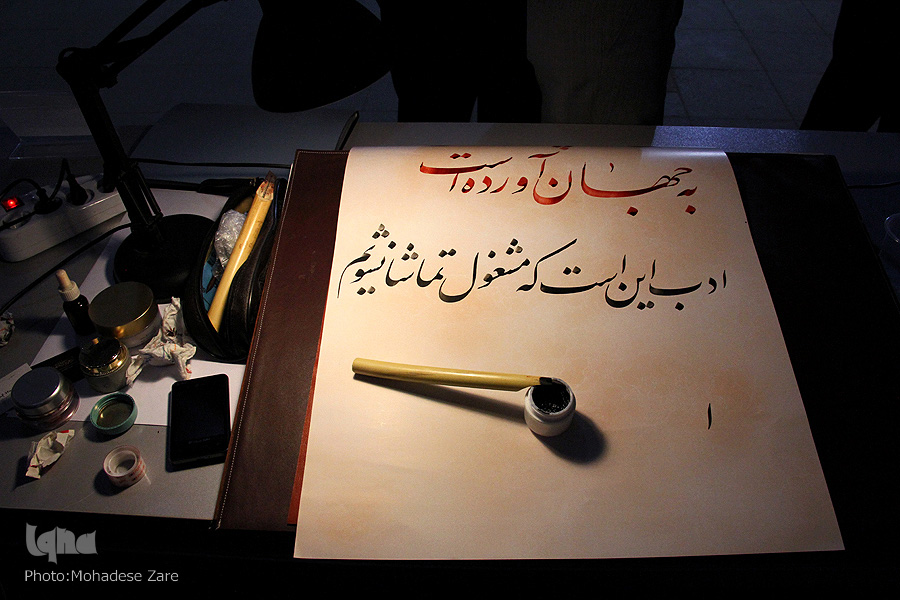 به جهان آورده است
ادب این است که مشغول تماشا نشویم
ا
Iqna
Photo:Mohadese Zare